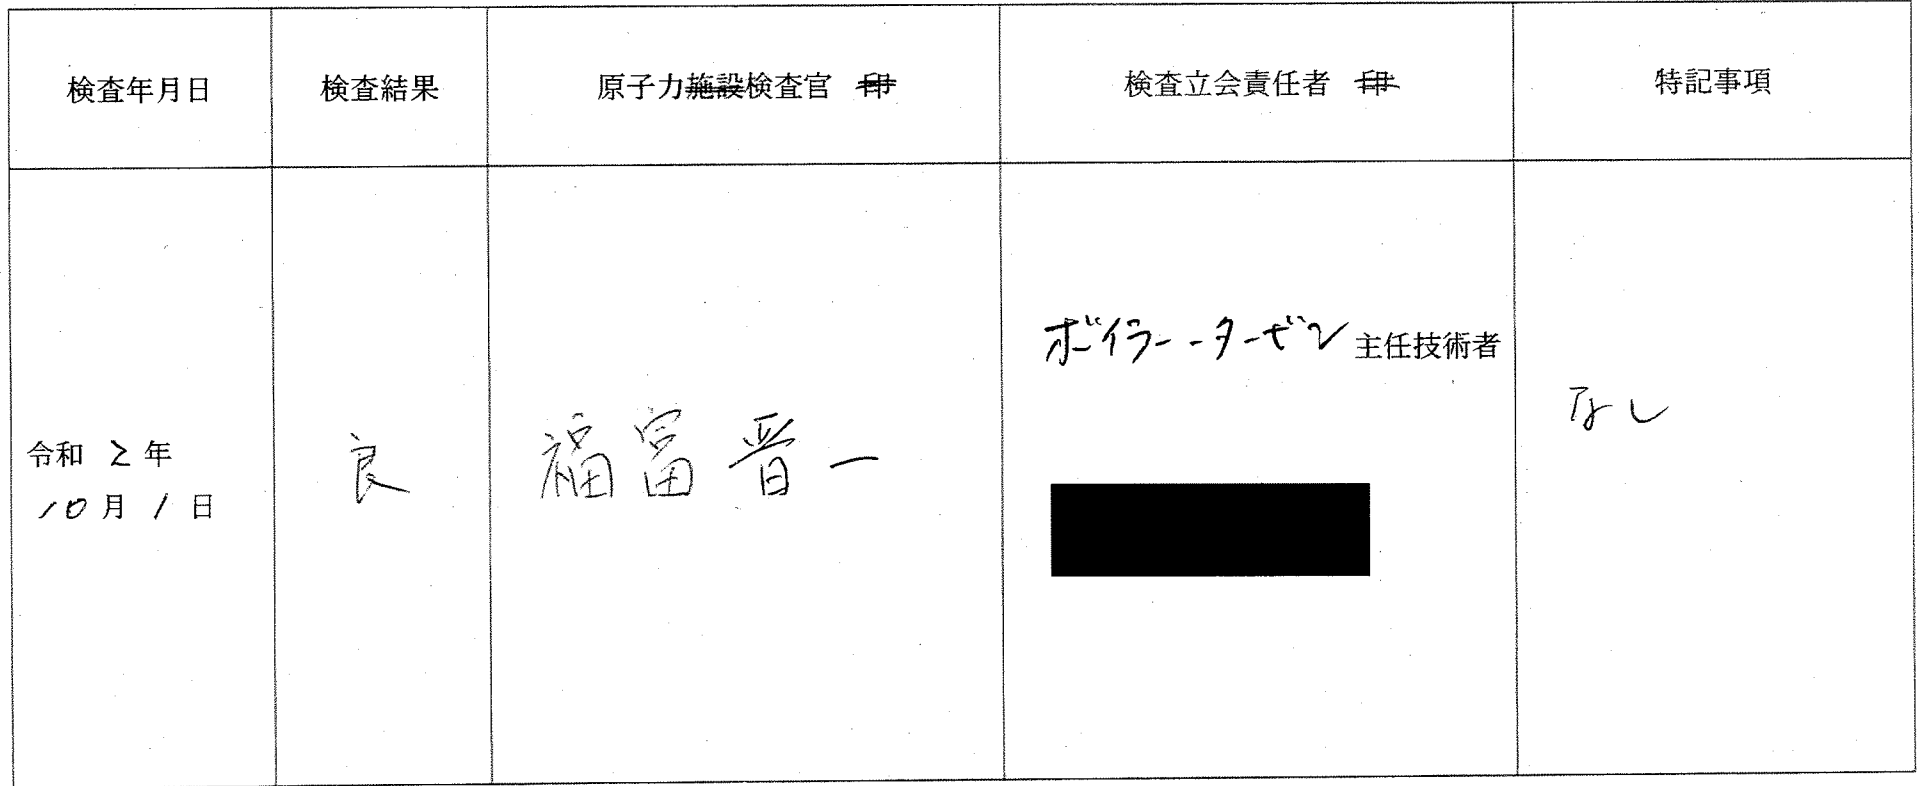 検査年月日
検査結果
原子力施設検査官 印
検査立会責任者 印
特記事項
令和 2 年
10 月 1 日
良
福富 晋一
ボイラー・タービン主任技術者
なし